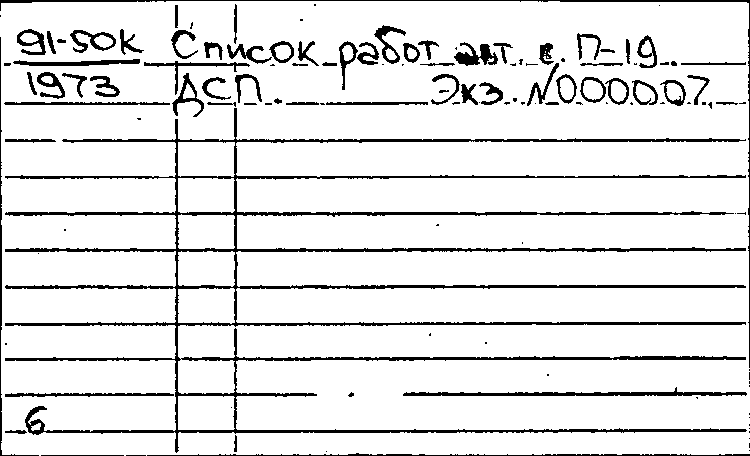 91-50К Список работ авт. с. П-19.
1973 ДСП. Экз. №000007.
6